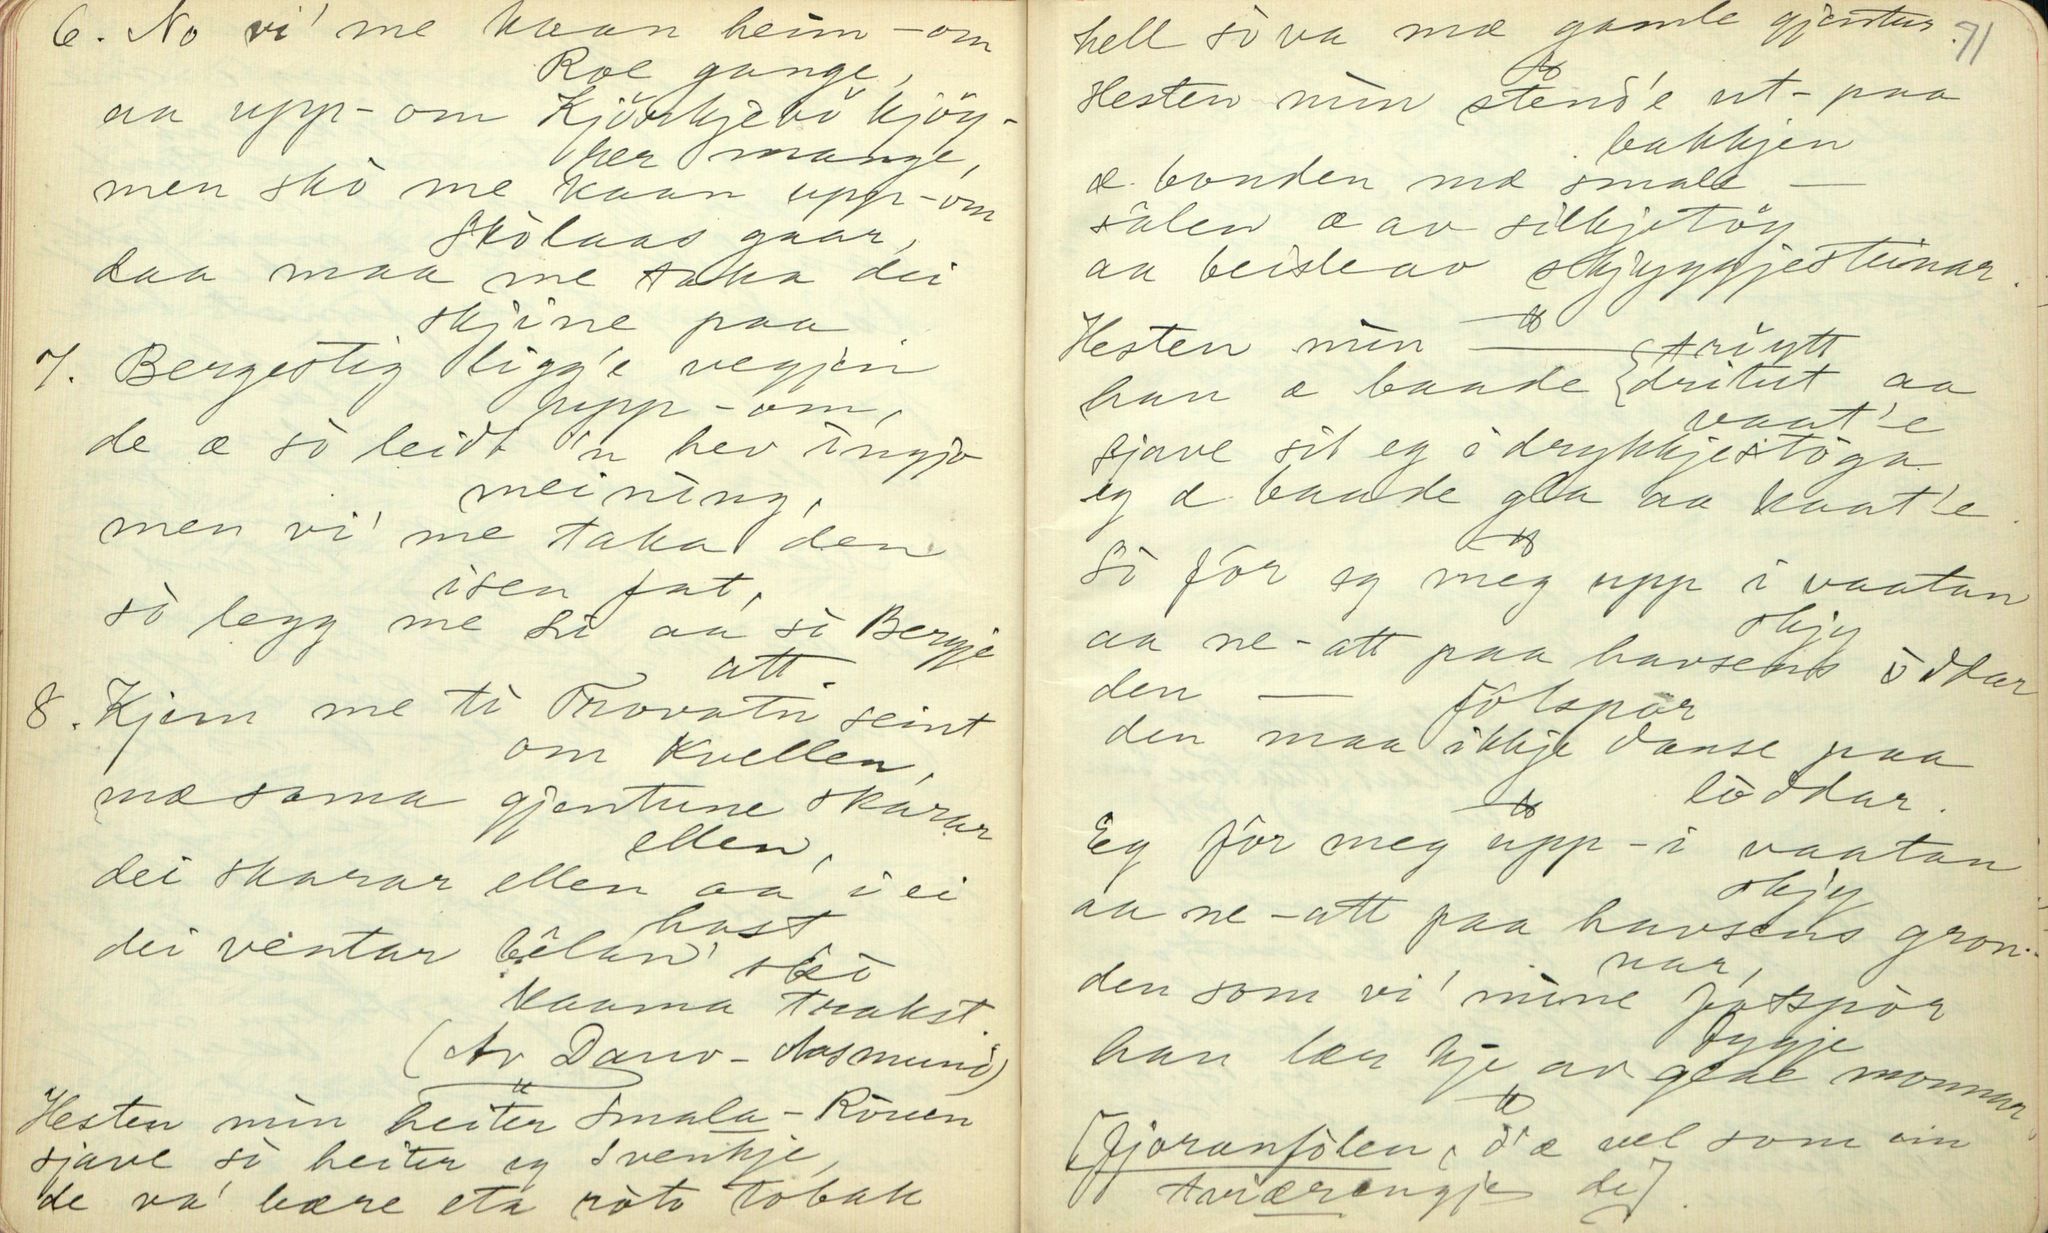 6. No vi' me kaan heim-om
Roe gange,
aa upp-om Kjörkjebö kjög-
ker mange,
men skò me kaan upp-om
Skòlaas gaar,
daa maa me taka dei
skjine paa
7. Bergestig ligg'e vegjen
upp-om,
de æ sò leidt 'n hev ingjo
meining,
men vi' me taka den
isen fat,
sò legg me li aa si Bergje
att.
8. Kjem me ti Trovatn seint
om kvellen,
mæ soma gjentune skarar
ellen,
dei skarar ellen aa i ei
hast
dei ventar bêlan' skò
kaama trakst.
(Av Daru-Aasmund)
"
Hesten min heiter Smala-Röuen
sjave sò heiter eg Svenkje,
de va' bære eta ròto tobak
hell sòva mæ gamle gjentur.
71
Hesten min stend'e ut-paa
bakkjen
æ bonden mæ smale —
sâlen æ av silkjetöy
aa beisle av skjyggjesteinar.
"
Hesten min — triytt
han æ baade {dritut aa
vaat'e
sjave sit eg i drykkjestòga
eg æ baade gla aa kaat'e.
"
Sò fór eg meg upp i vaatan
skjy
aa ne-att paa havsens òddar
den — fòtspòr
den maa ikkje danse paa
lòddar.
"
Eg fór meg upp-i vaatan
skjy
aa ne-att paa havsens gron-
nar,
den som vi' mine fotspòr
fygje
han lær kje av gode monnar
"
[fjoranfòlen, d'æ vel som ein
tviærengje de].